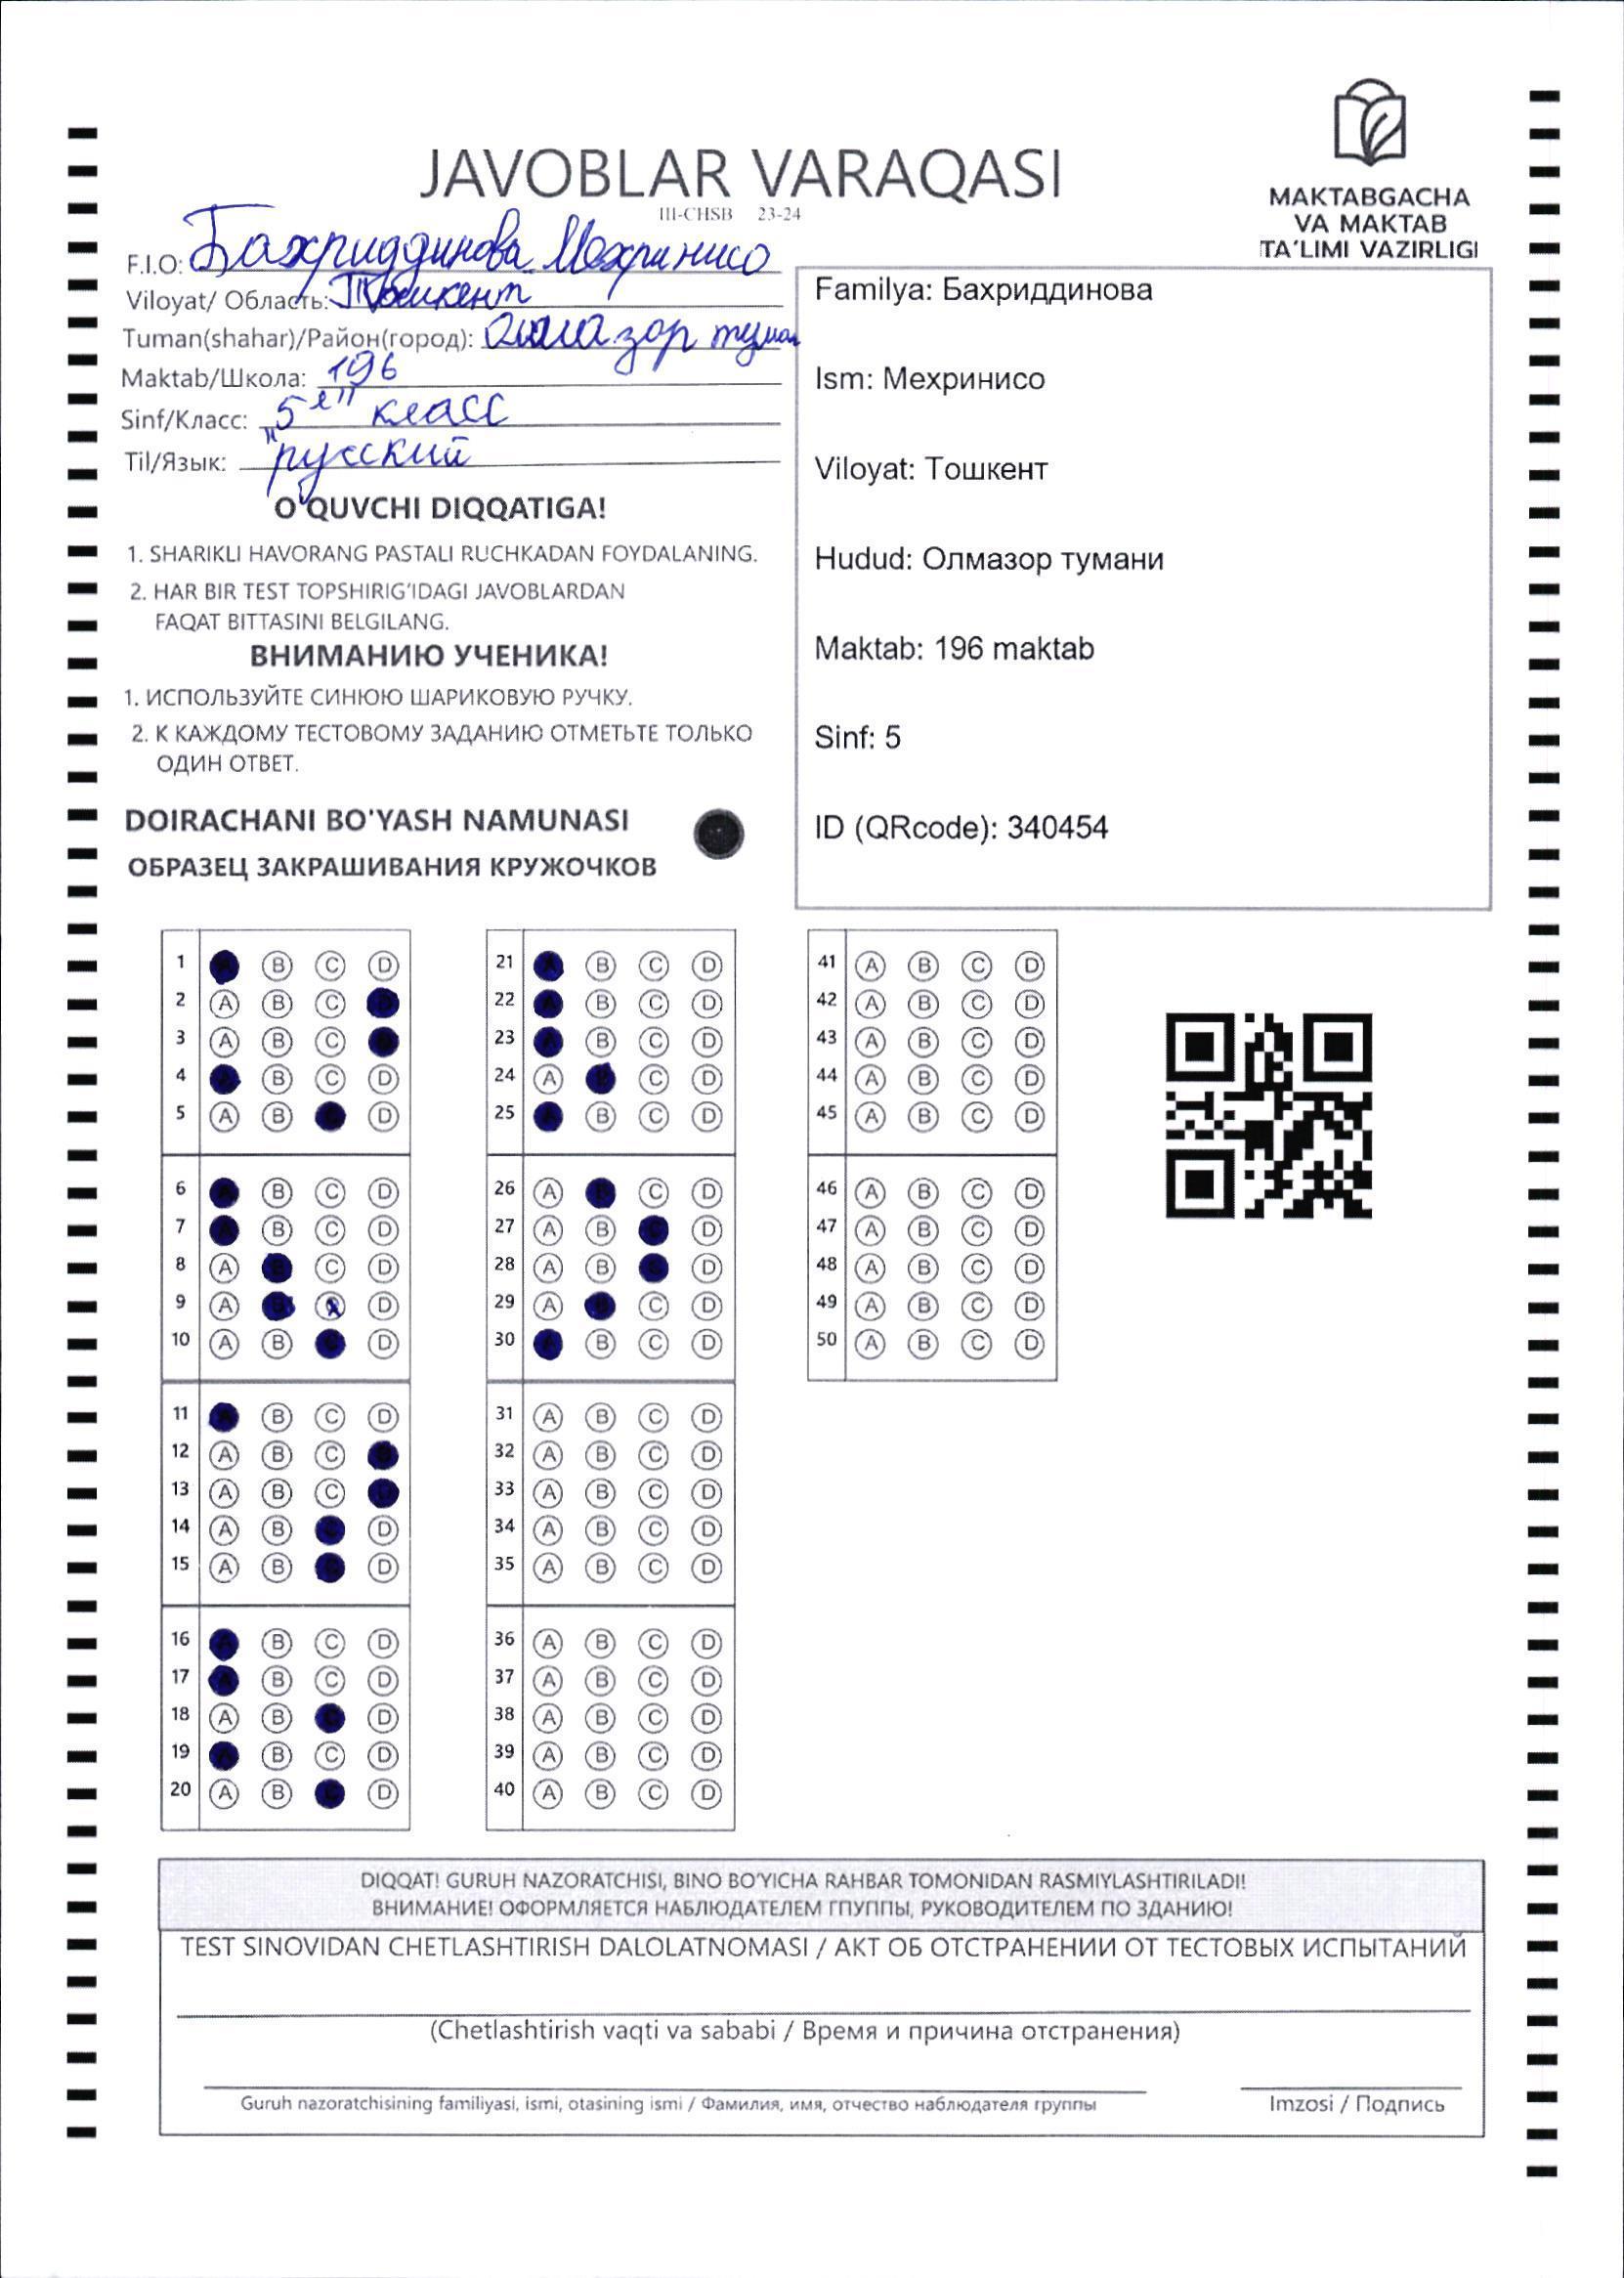 MAKTABGACHA
VA MAKTAB
TA'LIMI VAZIRLIGI
JAVOBLAR VARAQASI
III-CHSB 23-24
F.I.O: Бахриддинова Мехринисо
Viloyat/ Область: Тошкент
Tuman(shahar)/Район(город): Олмазор туман
Maktab/Школа: 196
Sinf/Класс: 5 "е" класс
Til/Язык: русский
O'QUVCHI DIQQATIGA!
1. SHARIKLI HAVORANG PASTALI RUCHKADAN FOYDALANING.
2. HAR BIR TEST TOPSHIRIG'IDAGI JAVOBLARDAN
FAQAT BITTASINI BELGILANG.
ВНИМАНИЮ УЧЕНИКА!
1. ИСПОЛЬЗУЙТЕ СИНЮЮ ШАРИКОВУЮ РУЧКУ.
2. К КАЖДОМУ ТЕСТОВОМУ ЗАДАНИЮ ОТМЕТЬТЕ ТОЛЬКО
ОДИН ОТВЕТ.
DOIRACHANI BO'YASH NAMUNASI
ОБРАЗЕЦ ЗАКРАШИВАНИЯ КРУЖОЧКОВ
Familya: Бахриддинова
Ism: Мехринисо
Viloyat: Тошкент
Hudud: Олмазор тумани
Maktab: 196 maktab
Sinf: 5
ID (QRcode): 340454
1 A B C D
2 A B C D
3 A B C D
4 A B C D
5 A B C D
6 A B C D
7 A B C D
8 A B C D
9 A B C D
10 A B C D
11 A B C D
12 A B C D
13 A B C D
14 A B C D
15 A B C D
16 A B C D
17 A B C D
18 A B C D
19 A B C D
20 A B C D
21 A B C D
22 A B C D
23 A B C D
24 A B C D
25 A B C D
26 A B C D
27 A B C D
28 A B C D
29 A B C D
30 A B C D
31 A B C D
32 A B C D
33 A B C D
34 A B C D
35 A B C D
36 A B C D
37 A B C D
38 A B C D
39 A B C D
40 A B C D
41 A B C D
42 A B C D
43 A B C D
44 A B C D
45 A B C D
46 A B C D
47 A B C D
48 A B C D
49 A B C D
50 A B C D
DIQQAT! GURUH NAZORATCHISI, BINO BO'YICHA RAHBAR TOMONIDAN RASMIYLASHTIRILADI!
ВНИМАНИЕ! ОФОРМЛЯЕТСЯ НАБЛЮДАТЕЛЕМ ГПУППЫ, РУКОВОДИТЕЛЕМ ПО ЗДАНИЮ!
TEST SINOVIDAN CHETLASHTIRISH DALOLATNOMASI / АКТ ОБ ОТСТРАНЕНИИ ОТ ТЕСТОВЫХ ИСПЫТАНИЙ
(Chetlashtirish vaqti va sababi / Время и причина отстранения)
Guruh nazoratchisining familiyasi, ismi, otasining ismi / Фамилия, имя, отчество наблюдателя группы
Imzosi / Подпись